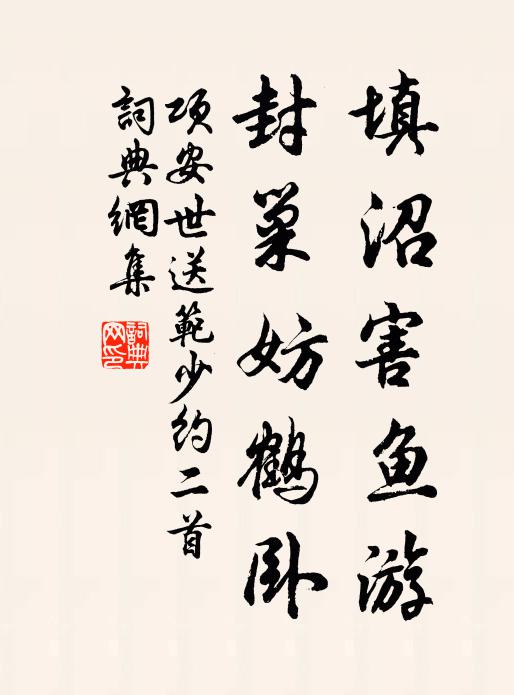 填沼害鱼游
封巢妨鹤卧
项安世送範少约二首
詞典網集
詞典网印